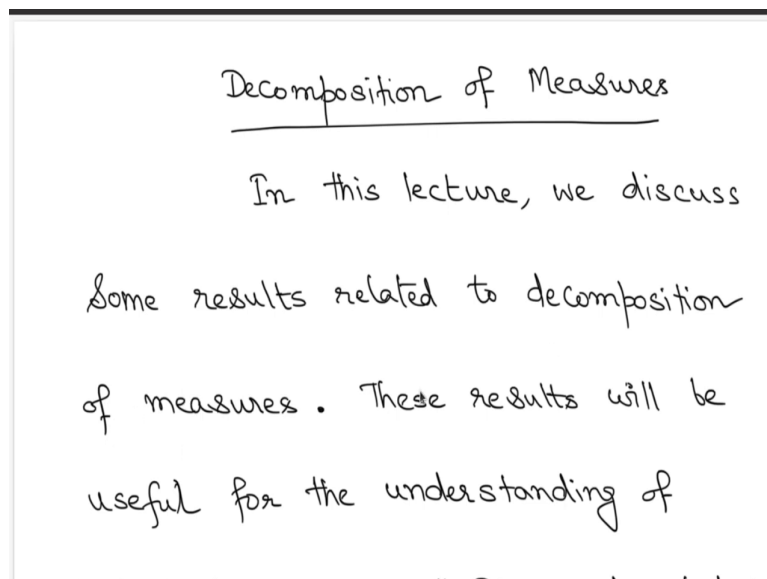 Decomposition of Measures
In this lecture, we discuss
Some results related to decomposition
of measures. These results will be
useful for the understanding of